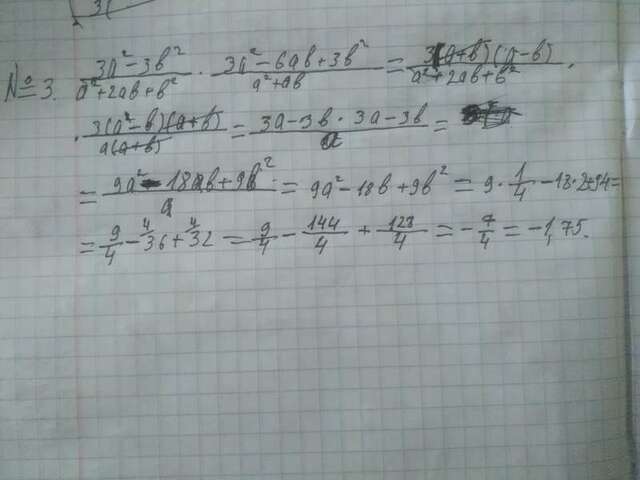 3(
№3. (3a²-3b²)/(a²+2ab+b²) · (3a²-6ab+3b²)/(a²+ab) = 3(a+b)(a-b)/(a²+2ab+b²) ·
· 3(a²-b)(a+b)/a(a+b) = (3a-3b · 3a-3b)/a =
= (9a²-18ab+9b²)/a = 9a²-18b+9b² = 9·1/4-18·2+94=
= 9/4 - 36 + 32 = 9/4 - 144/4 + 128/4 = -7/4 = -1,75.